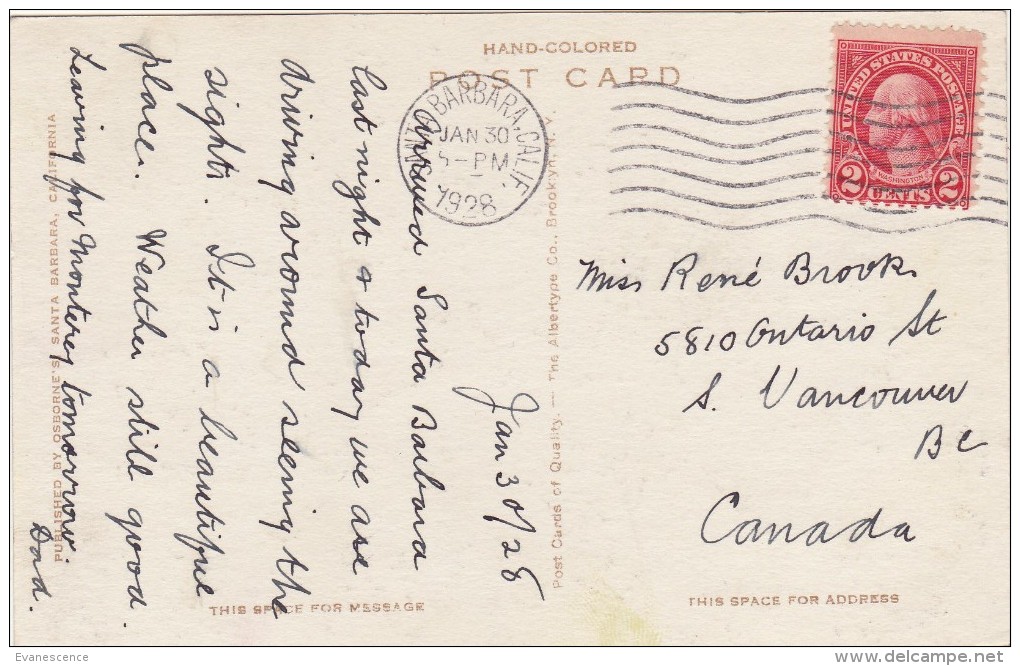 HAND-COLORED
POST CARD
SANTA BARBARA, CALIF.
JAN 30
5-PM
1928
UNITED STATES POSTAGE
WASHINGTON
2 CENTS 2
Jan 30/28
Arrived Santa Barbara
last night & today we are
driving around seeing the
sights. It is a beautiful
place. Weather still good
Leaving for Monterey tomorrow
Dad.
Miss René Brooks
5810 Ontario St
S. Vancouver
BC
Canada
PUBLISHED BY OSBORNE'S, SANTA BARBARA, CALIFORNIA
Post Cards of Quality. — The Albertype Co., Brooklyn, N. Y.
THIS SPACE FOR MESSAGE
THIS SPACE FOR ADDRESS
Evanescence
©delcampe.net